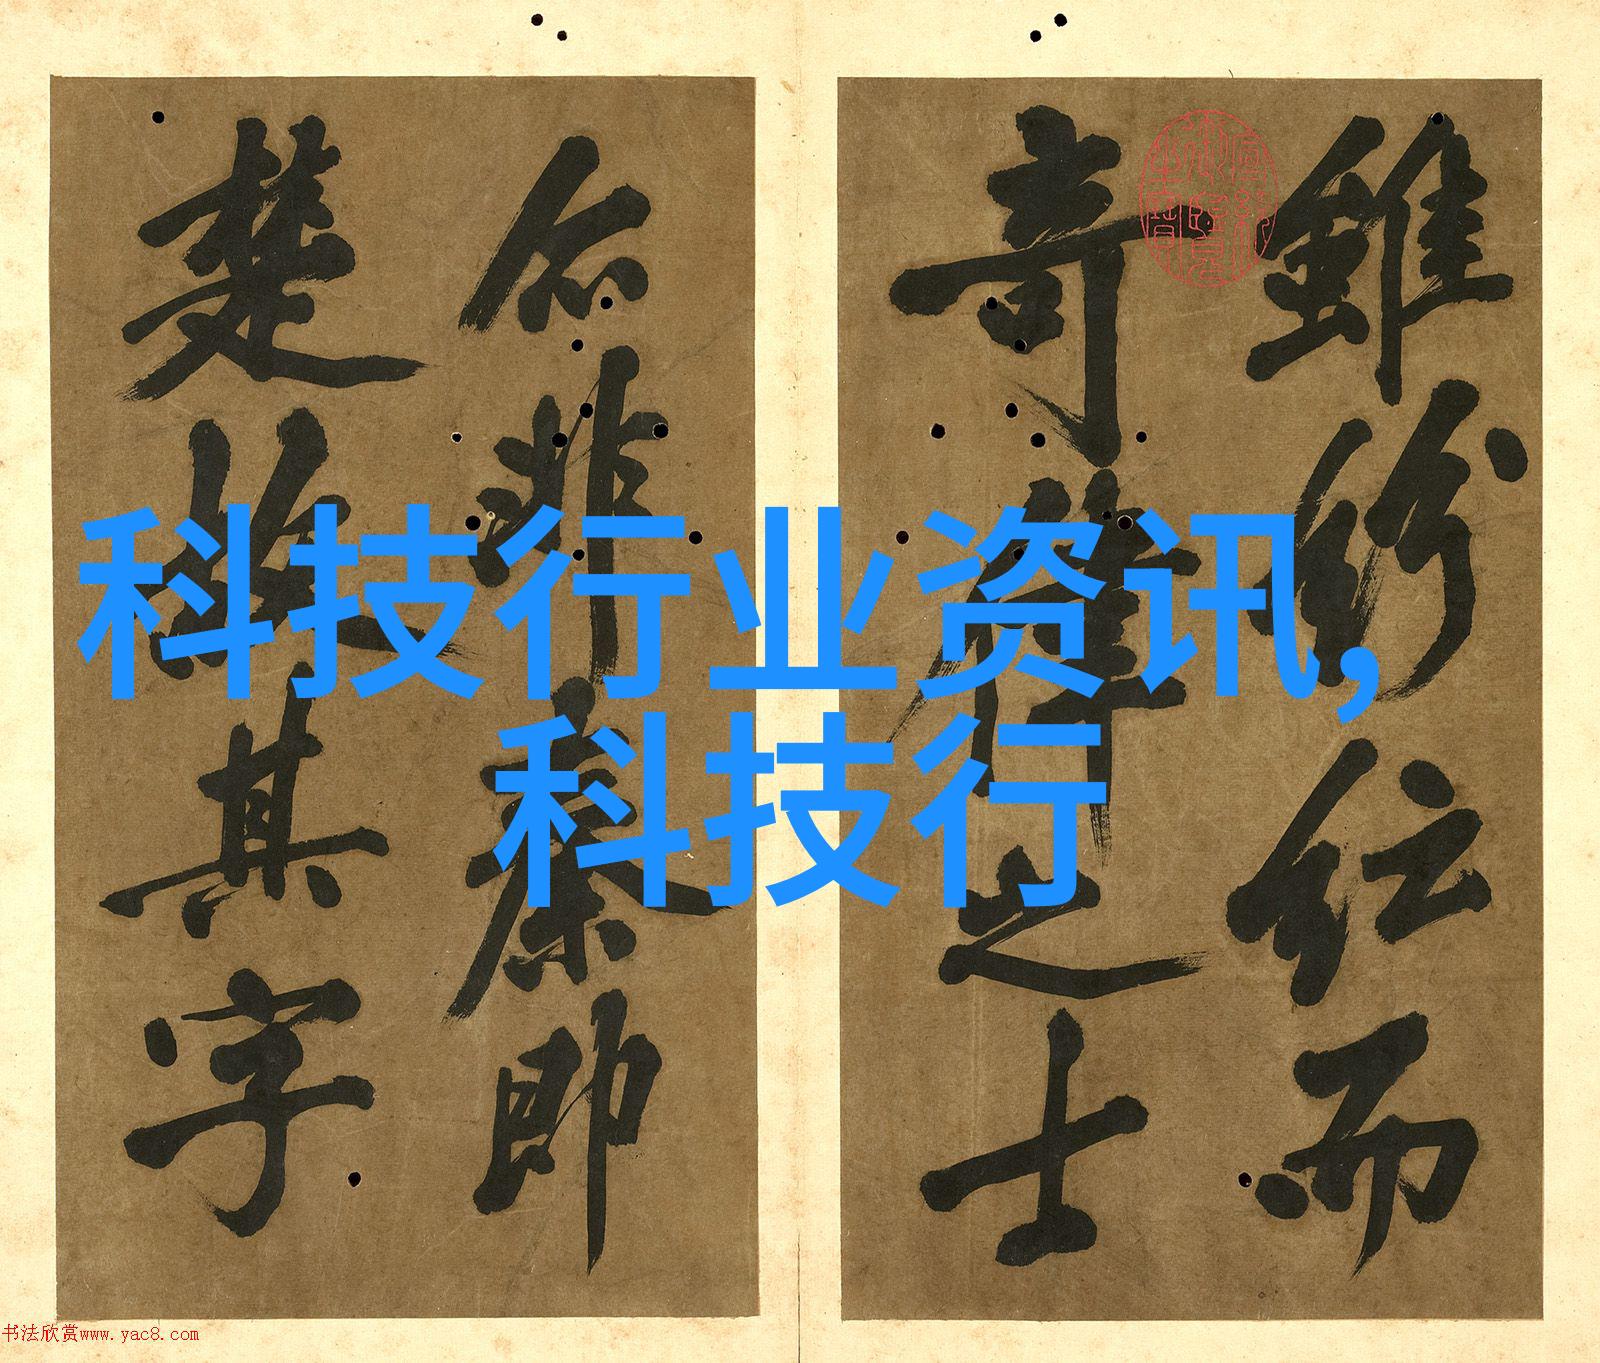 科技行业资讯,
科技行
雖紛紜而
奇偉之士
非秦即
楚故其字
书法欣赏www.yac8.com